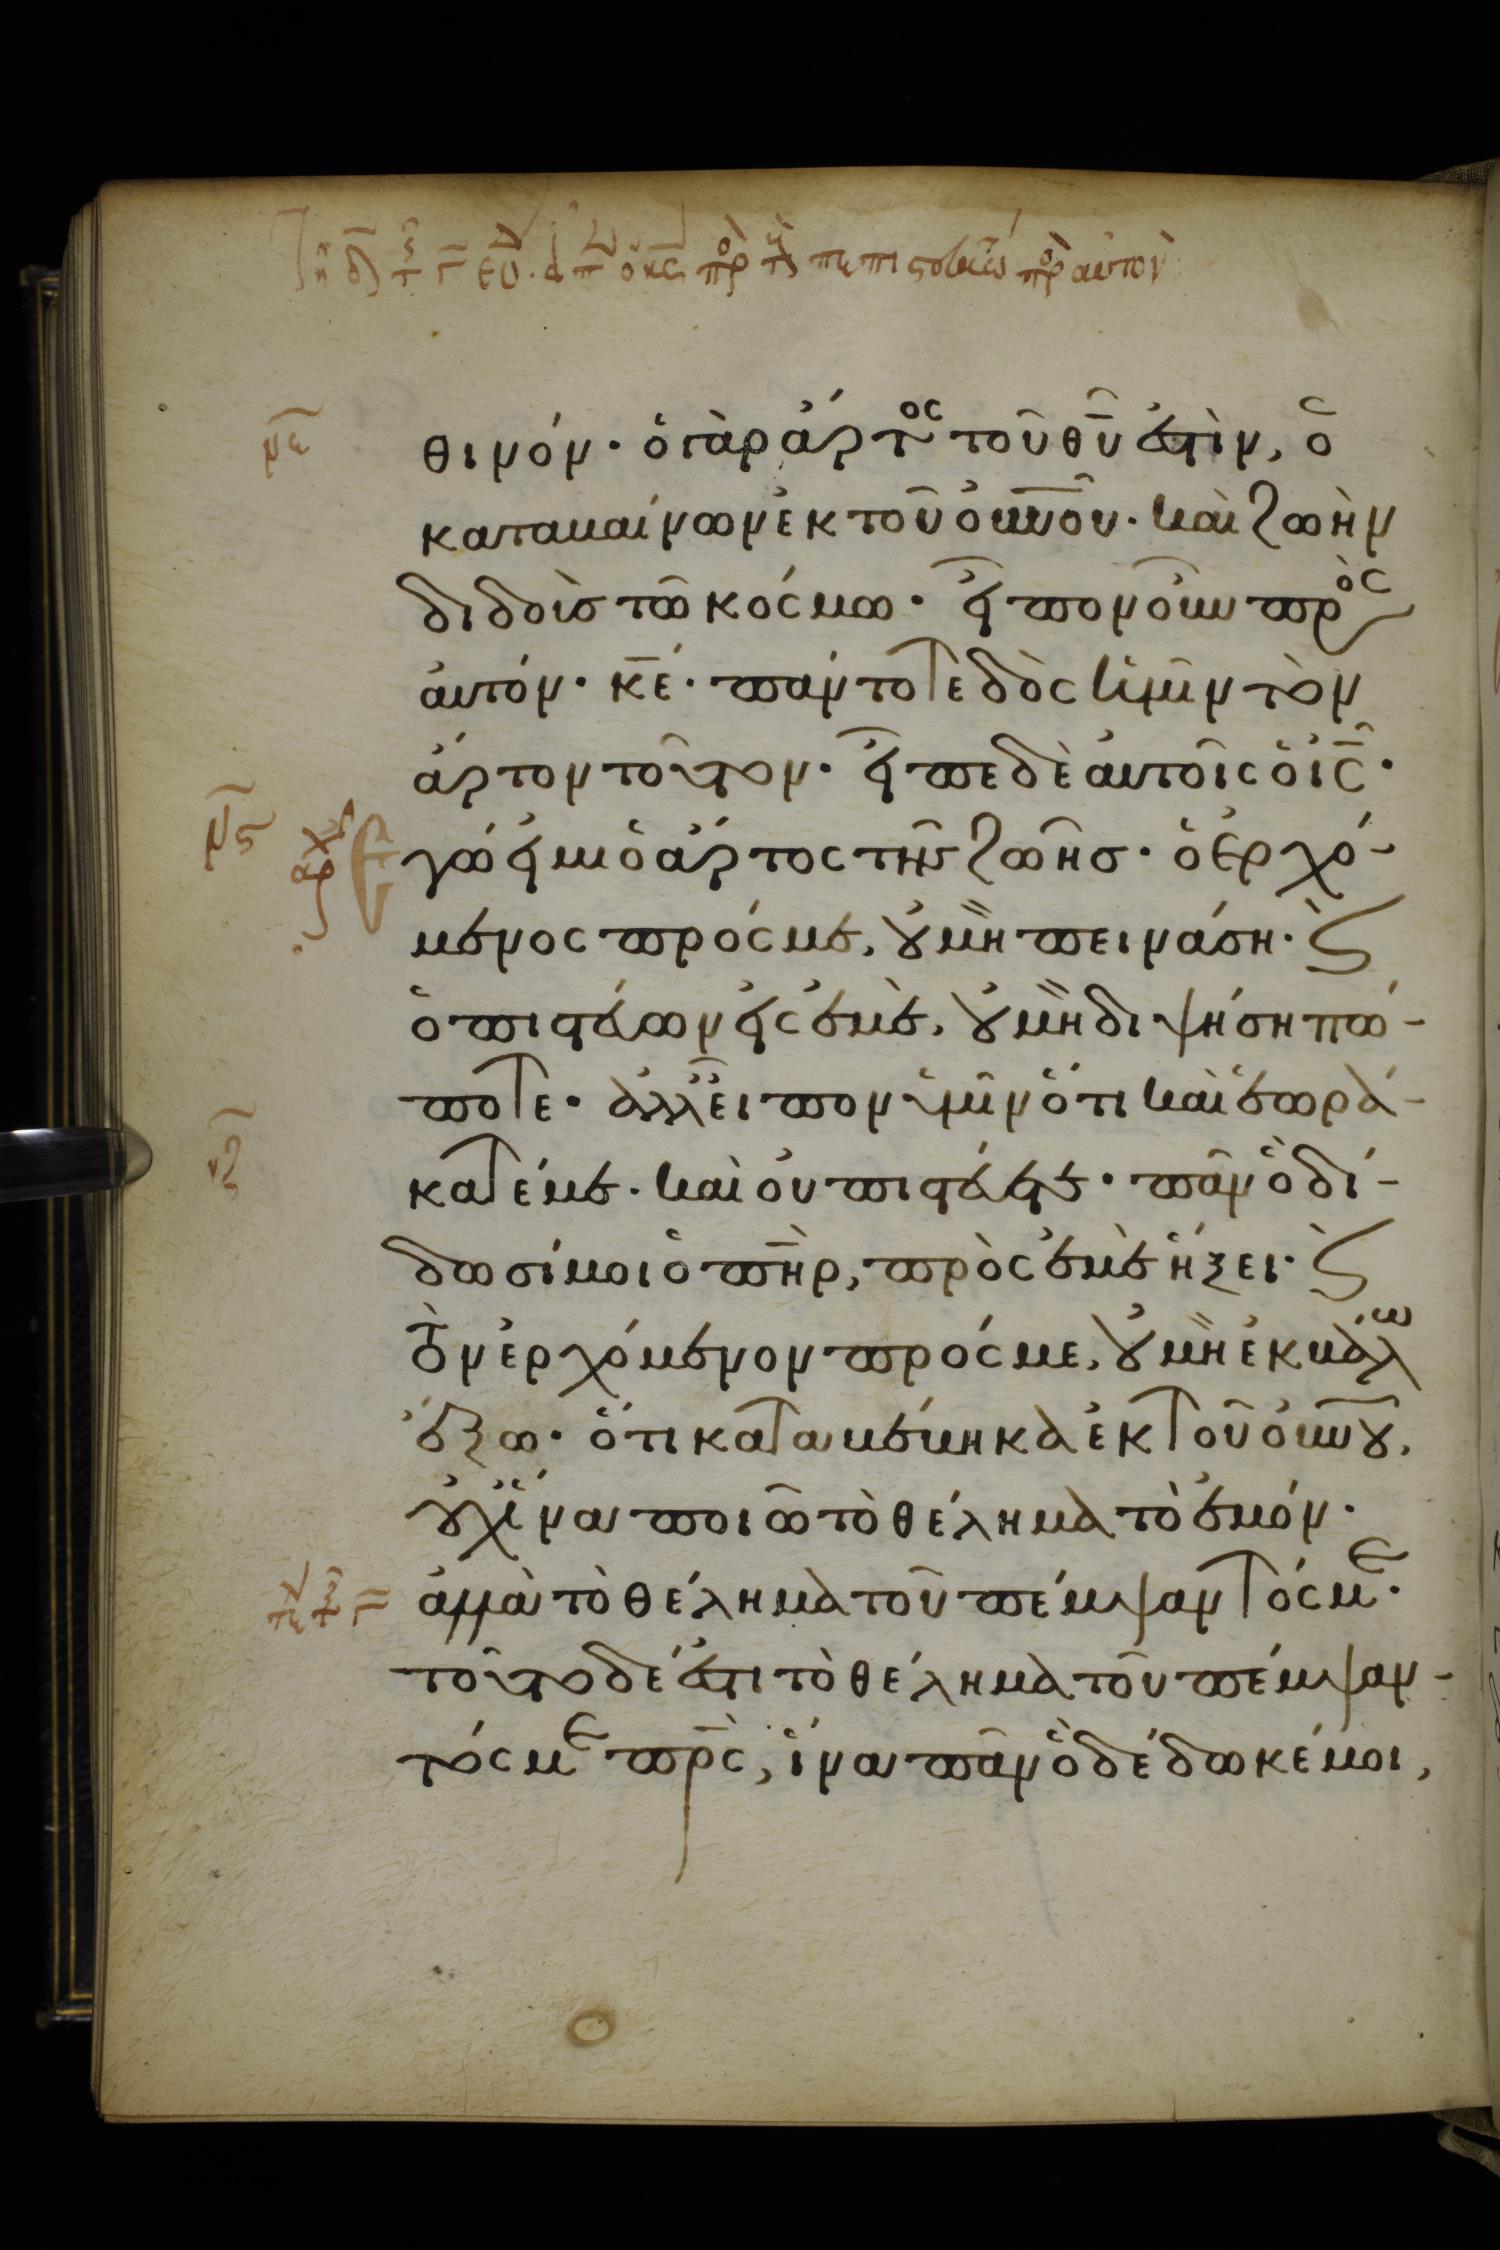 θινόν· ὁ γὰρ ἄρτος τοῦ θῦ ἐστὶν, ὁ
καταβαίνων ἐκ τοῦ οὐνοῦ· καὶ ζωὴν
διδοὺσ τῶ κόσμω· εἶπον οὖν πρὸς
αὐτόν· κέ· πάντοτε δὸς ἡμῖν τὸν
ἄρτον τοῦτον· εἶπε δὲ αὐτοῖς ὁ ις·
με
μς
αρχ
Ἐ
γώ εἰμι ὁ ἄρτος τῆς ζωῆσ· ὁ ἐρχό-
μενος πρός με, οὐ μὴ πεινάση· ς
ὁ πιστεύων εἰς ἐμὲ, οὐ μὴ διψήση πώ-
ποτε· ἀλλ εἶπον ὑμῖν ὅτι καὶ ἑωρά-
κατέ με· καὶ οὐ πιστεύετε· πᾶν ὃ δί-
δωσί μοι ὁ πὴρ, πρὸς ἐμὲ ἥξει· ς
τὸν ἐρχόμενον πρός με, οὐ μὴ ἐκβάλω
ἔξω· ὅτι καταβέβηκα ἐκ τοῦ οὐνοῦ,
οὐχ ἵνα ποιῶ τὸ θέλημα τὸ ἐμόν·
ἀλλὰ τὸ θέλημα τοῦ πέμψαντός με·
τοῦτο δέ ἐστι τὸ θέλημα τοῦ πέμψαν-
τός με πρς, ἵνα πᾶν ὃ δέδωκέ μοι,